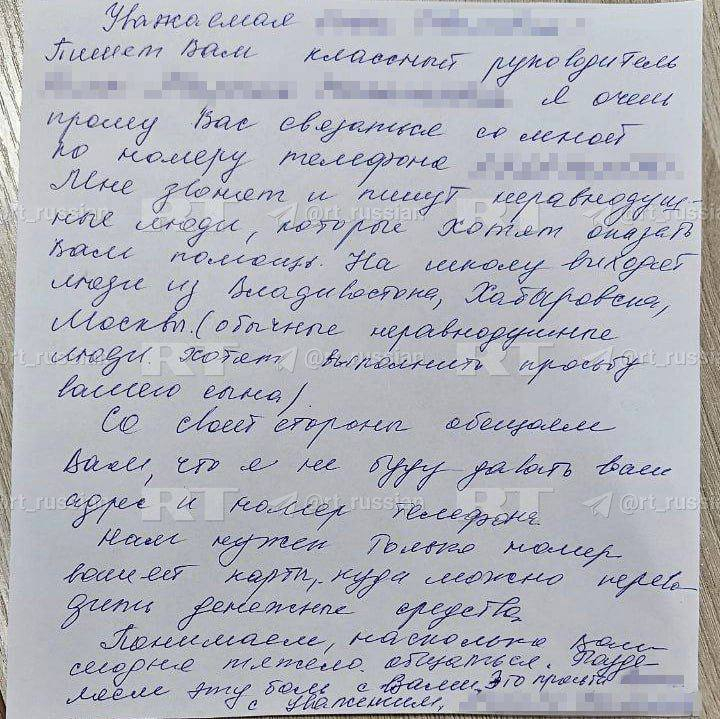 Уважаемая
Пишет Вам классный руководитель
Я очень
прошу Вас связаться со мной
по номеру телефона
Мне звонят и пишут неравнодуш-
ные люди, которые хотят оказать
Вам помощь. На школу выходят
люди из Владивостока, Хабаровска,
Москвы. (обычные неравнодушные
люди хотят выполнить просьбу
вашего сына)
Со своей стороны обещаем
Вам, что я не буду давать ваш
адрес и номер телефона
Нам нужен только номер
вашей карты, куда можно перево-
дить денежные средства.
Понимаем, насколько Вам
сегодня тяжело общаться. Разде-
ляем эту боль с Вами. Это просьба
с уважением,
RT @rt_russian